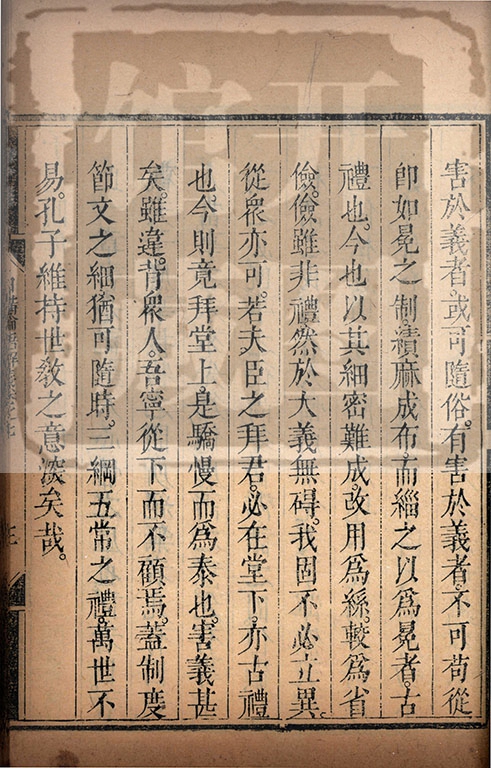 害於義者。或可隨俗。有害於義者。不可苟從
卽如冕之制績麻成布。而緇之以爲冕者。古
禮也。今也以其細密難成。改用爲絲。較爲省
儉。儉雖非禮然於大義無碍。我固不必立異。
從衆亦可。若夫臣之拜君。必在堂下。亦古禮
也。今則竟拜堂上。是驕慢而爲泰也。害義甚
矣。雖違背衆人。吾寧從下而不顧焉。蓋制度
節文之細猶可隨時。三綱五常之禮。萬世不
易。孔子維持世敎之意深矣哉。
七